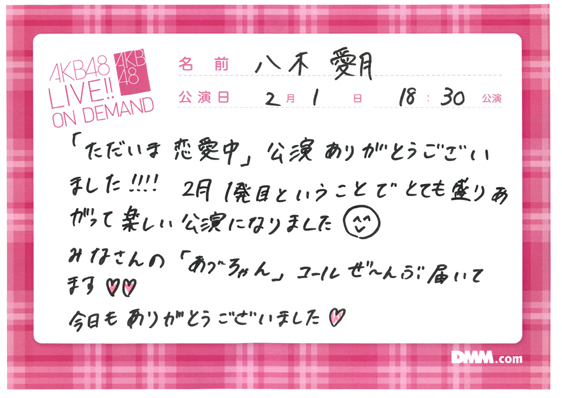 AKB48
LIVE!!
ON DEMAND
AKB
48
名前 八木 愛月
公演日 2月 1日 18:30 公演
「ただいま 恋愛中」公演 ありがとうござい
ました!!!! 2月 1発目ということで とても盛りあ
がって 楽しい 公演になりました
みなさんの「あづちゃん」コール ぜ〜んぶ届いて
ます♡♡
今日も ありがとうございました♡
DMM.com